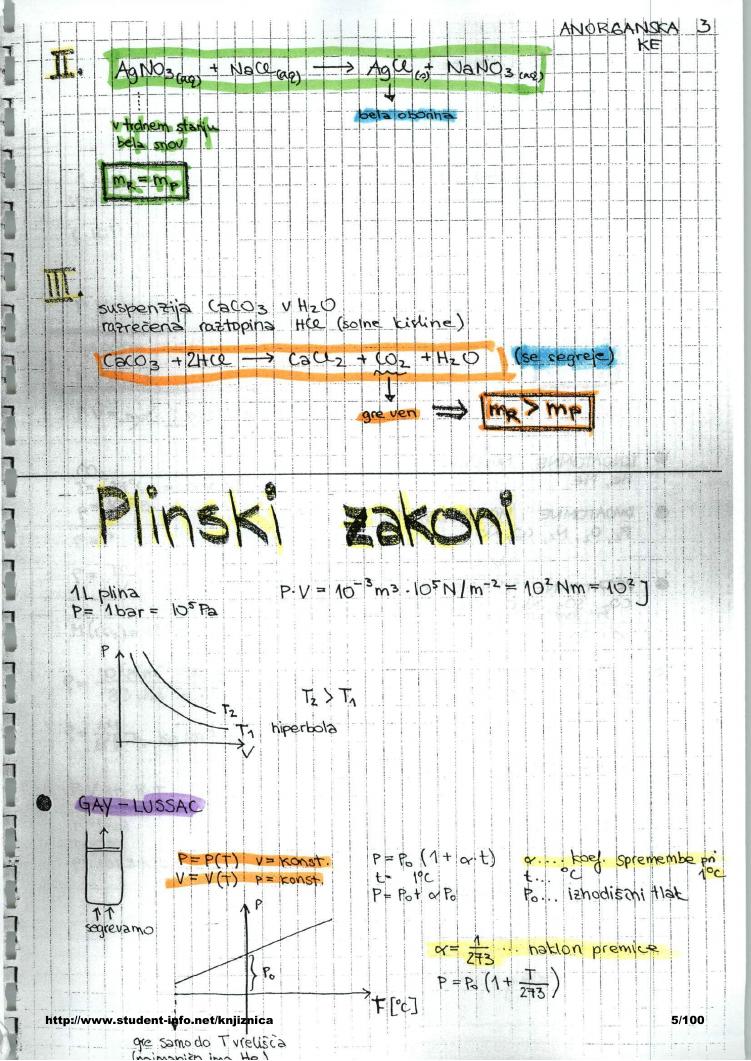 ANORGANSKA 3
KE
II.
AgNO₃(aq) + NaCl(aq) → AgCl(s) + NaNO₃(aq)
bela oborina
v trdnem stanju
bela snov
m_R = m_P
III.
suspenzija CaCO₃ v H₂O
razrečena raztopina HCl (solne kisline)
CaCO₃ + 2HCl → CaCl₂ + CO₂ + H₂O (se segreje)
gre ven ⇒ m_R > m_P
Plinski zakoni
1L plina
P = 1bar = 10⁵ Pa
P·V = 10⁻³ m³ · 10⁵ N/m⁻² = 10² Nm = 10² J
P
T₂
T₁
V
T₂ > T₁
hiperbola
GAY-LUSSAC
segrevamo
P = P(T) V = konst.
V = V(T) P = konst.
P = P₀ (1 + α·t)
t = 1°C
P = P₀ + αP₀
α.... koef. spremembe pri
1°C
t... °C
P₀... izhodiščni tlak
P
P₀
T [°C]
α = 1/273 ... naklon premice
P = P₀ (1 + T/273)
http://www.student-info.net/knjiznica
5/100
gre samo do T vrelišča